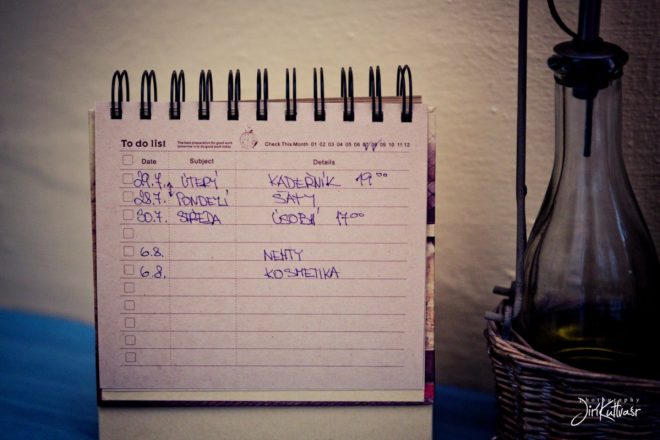 To do list The best preparation for good work tomorrow is to do good work today Check This Month 01 02 03 04 05 06 07 08 09 10 11 12
Date Subject Details
29.7. ÚTERÝ KADEŘNÍK 19⁰⁰
28.7. PONDELÍ ŠATY
30.7. STŘEDA 17⁰⁰
6.8. NEHTY
6.8. KOSMETIKA
photography
Jiří Kuttvasr